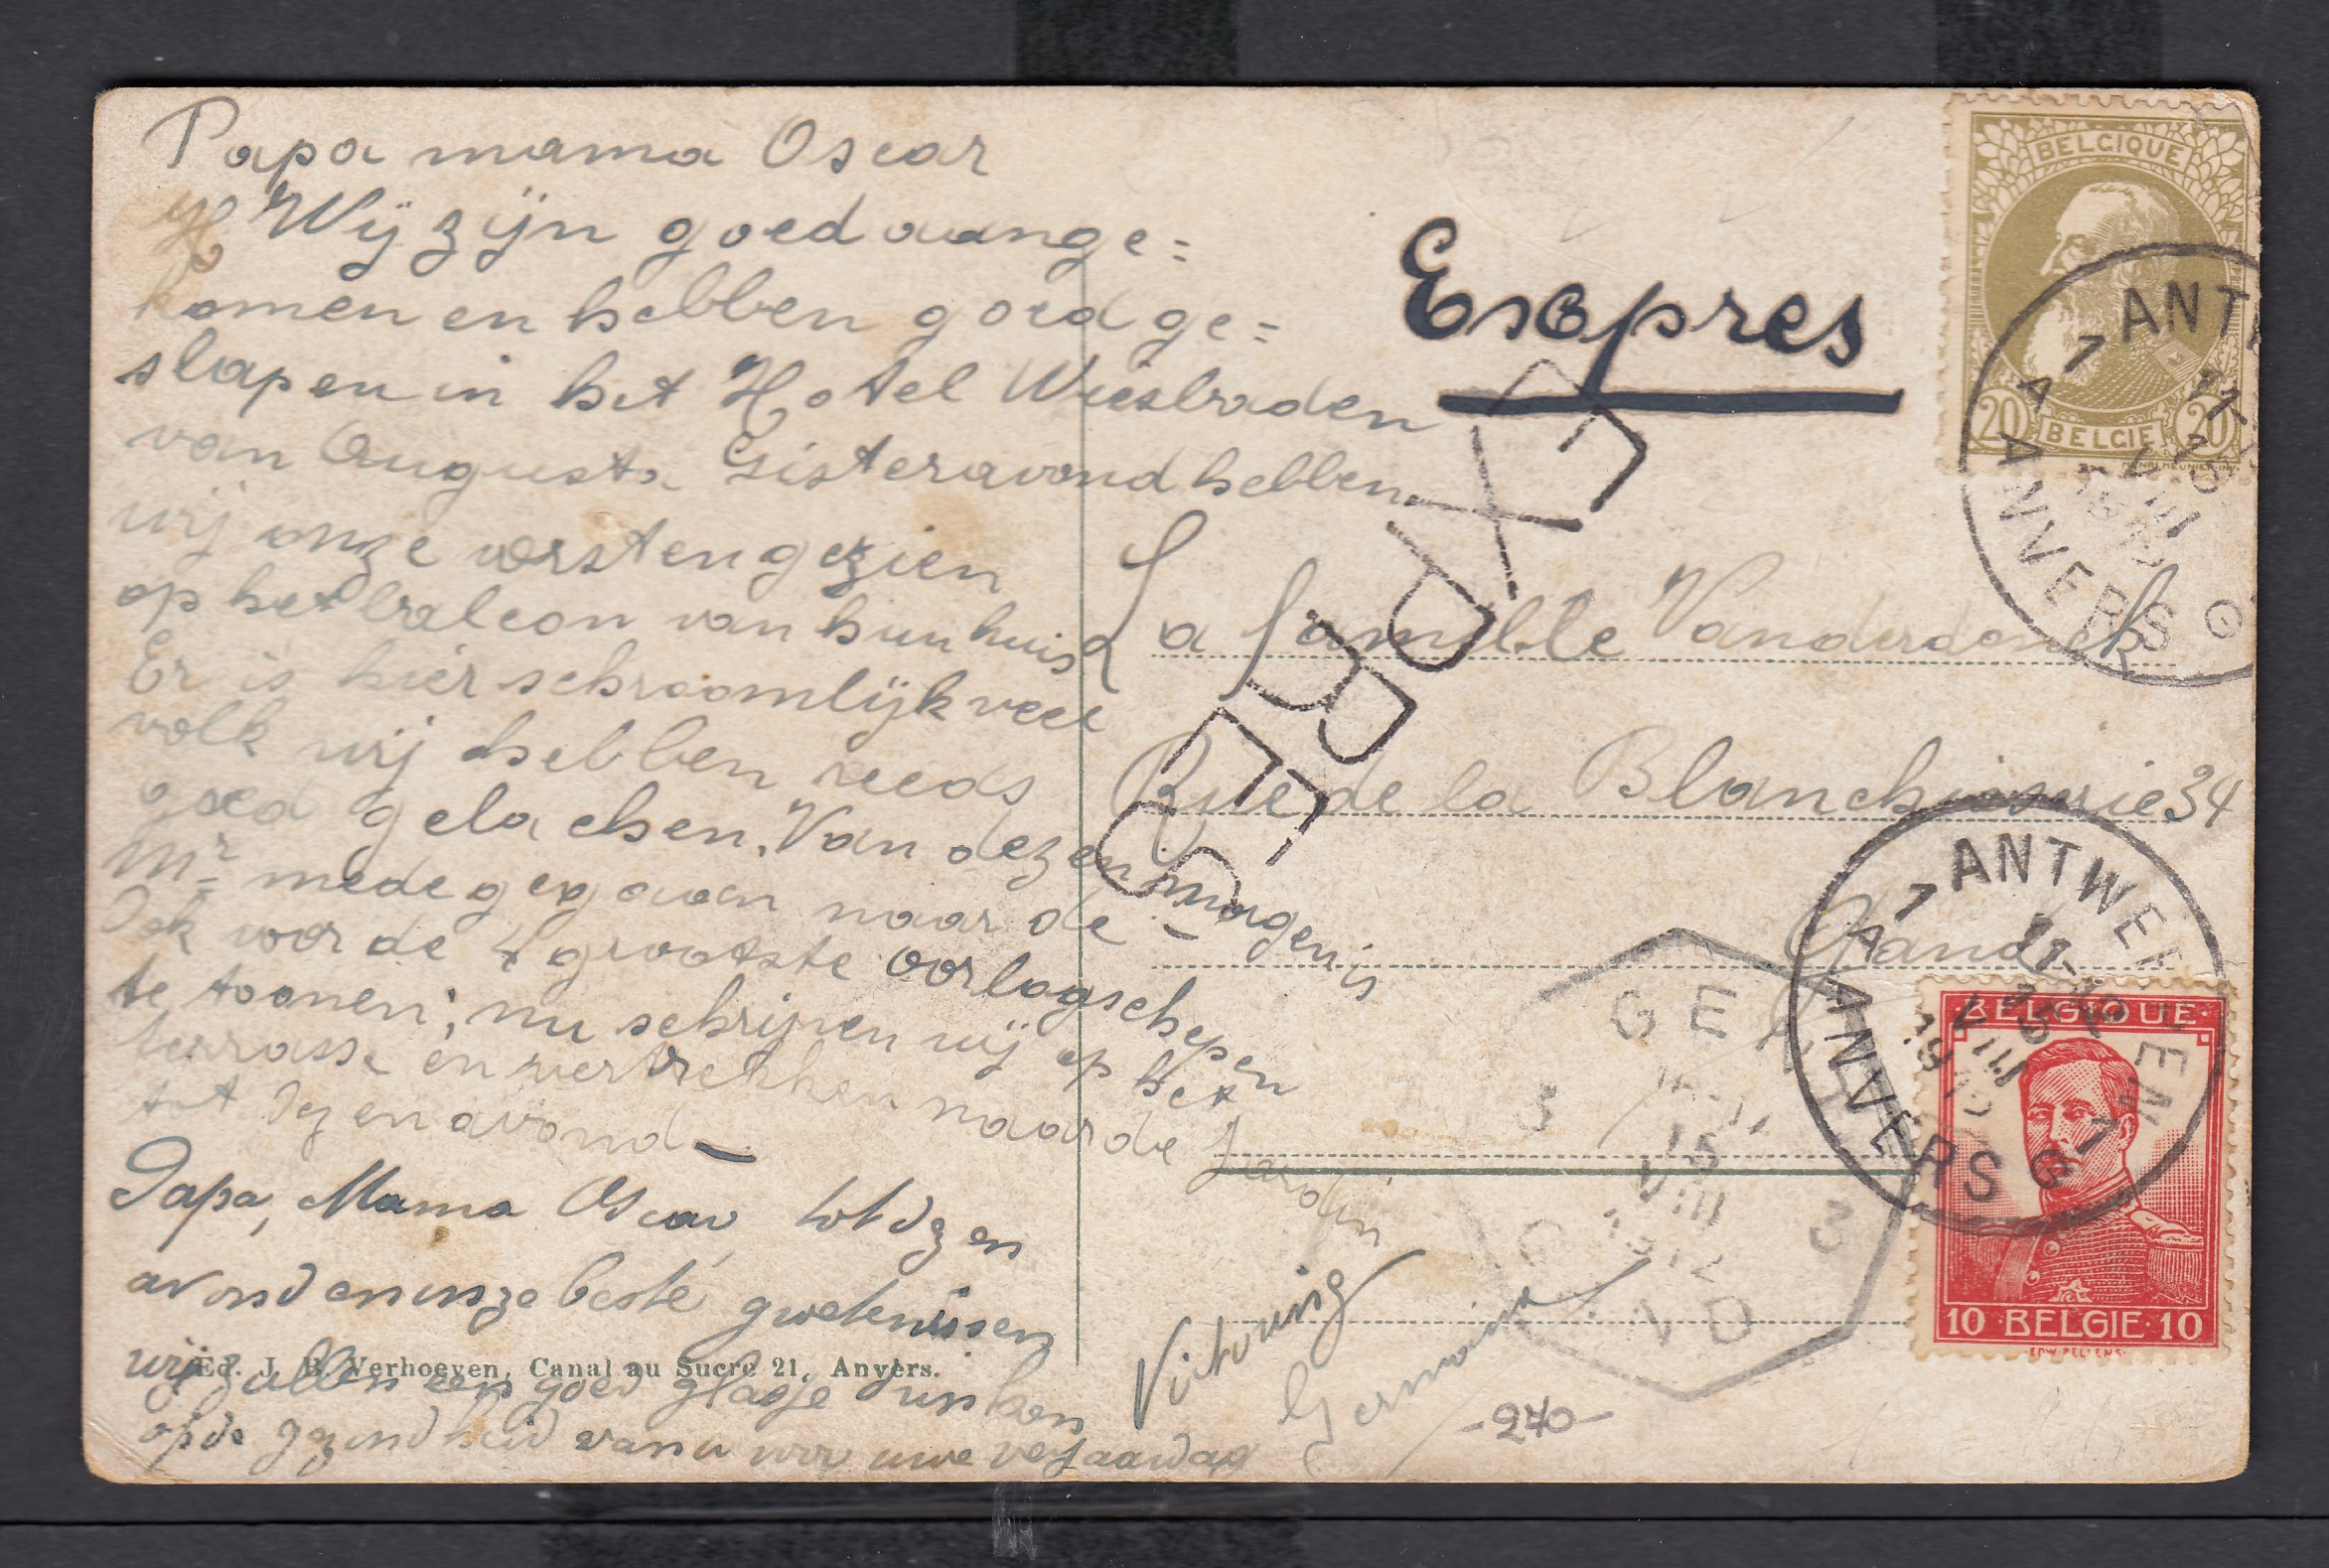 Papa mama Oscar
Wij zijn goed aange=
komen en hebben goed ge=
slapen in het Hotel Wiesbaden
van Augusta Gisteravond hebben
wij onze vorsten gezien
op het balcon van hun huis
Er is hier schroomlijk veel
volk wij hebben reeds
goed gelachen. Van dezen morgen is
Mr medegegaan naar de
Dok voor de 4 grootste oorlogschepen
te toonen; nu schrijven wij op het
terrasse en vertrekken naar de Jardin
tot dezen avond —
Papa, Mama Oscar tot dezen
avond en onze beste
wij zullen een goed glasje drinken
op de gezondheid van u voor uwe verjaardag
Victorine
Germaine
Ed. J. B. Verhoeven, Canal au Sucre 21, Anvers.
Expres
EXPRES
La famille Vanderdonck
Rue de la Blanchisserie 34
Gand
-270-
BELGIQUE
20 BELGIE 20
HENRI MEUNIER INV.
ANTW
7 A 11-
15
VIII
1912
ANVERS
ANTWERPEN 1
7 A 11-
15
VIII
1912
ANVERS
BELGIQUE
10 BELGIE 10
EDW. PELLENS
GENT
3 3
15
VIII
1912
G ND